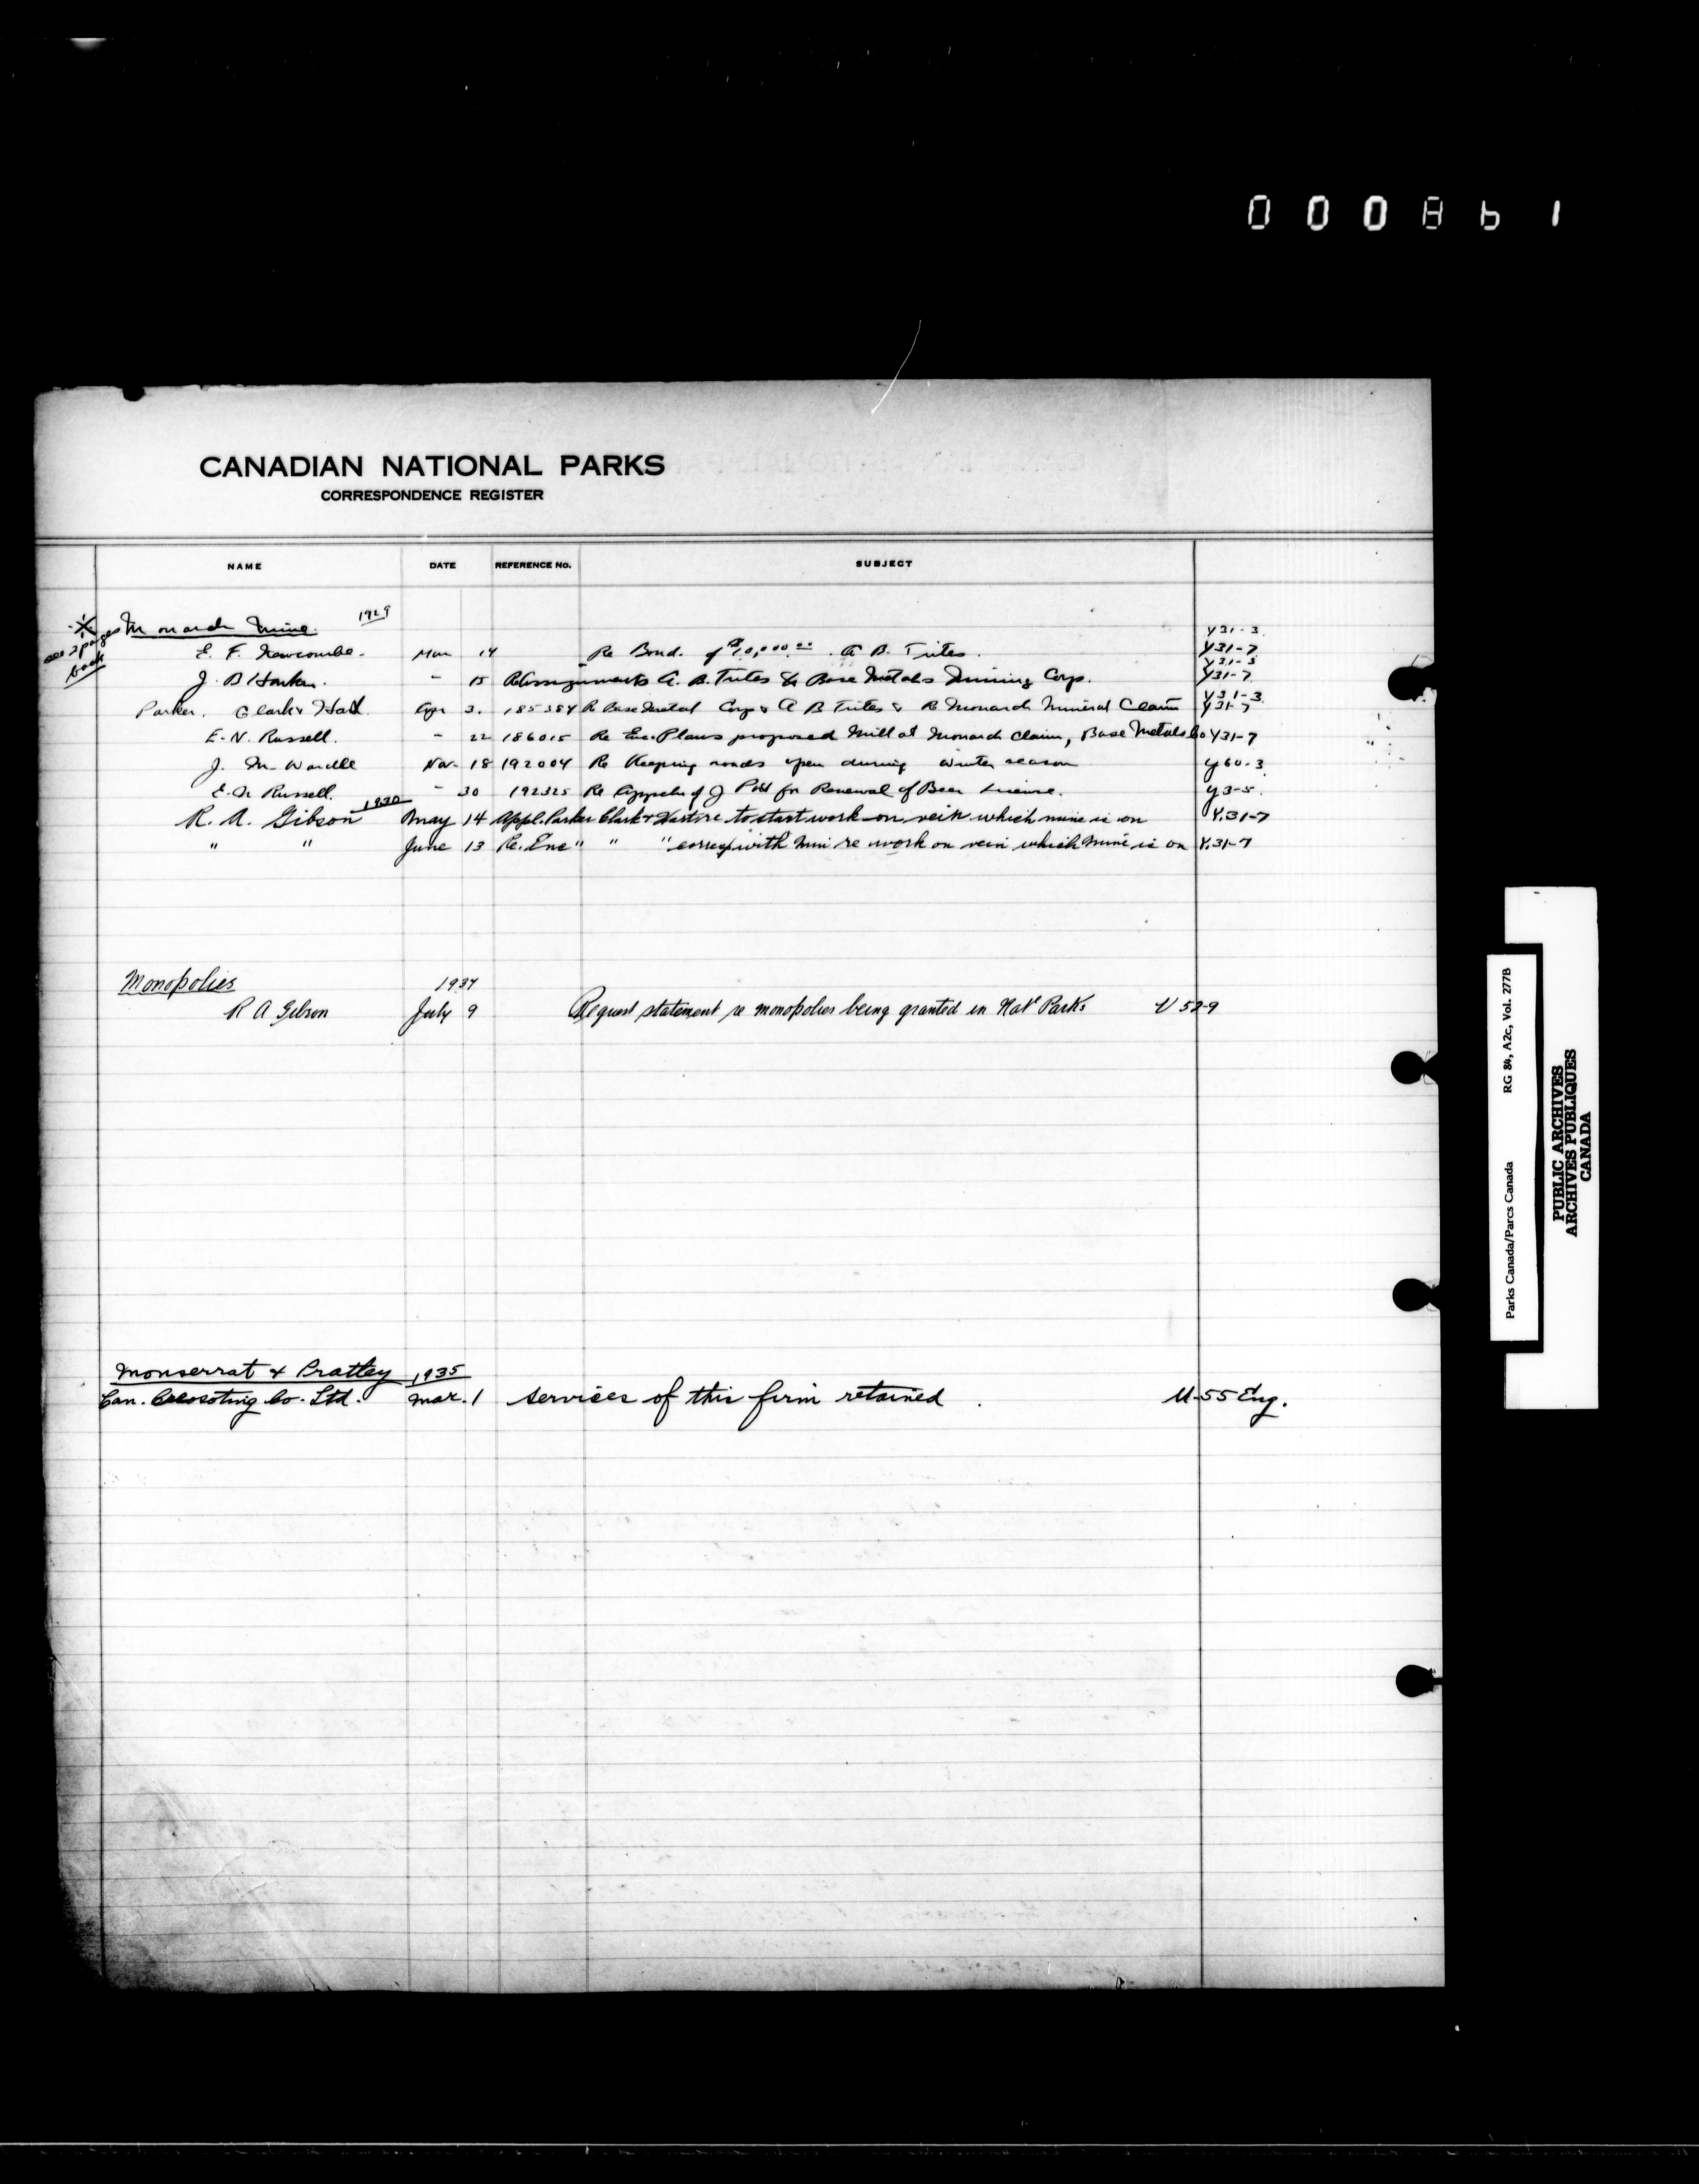 0008b1
CANADIAN NATIONAL PARKS
CORRESPONDENCE REGISTER
NAME DATE REFERENCE No. SUBJECT
see 2 pages back
Monarch Mine. 1929 Y31-3
E. F. Newcombe. Mar 14 Re Bond. of $10,000.00. A B. Trites. Y31-7
Y31-3
J. B Harkin. " 15 Re Assignments A. B. Trites & Base Metals Mining Corp. Y31-7
Y31-3
Parker. Clark & Hart Apr 3. 185384 Re Base Metal Corp & A B Trites & Re Monarch Mineral Claim Y31-7
E. N. Russell. " 22 186015 Re Enc. Plans proposed Mill at Monarch Claim, Base Metals Co Y31-7
J. M. Wardle Nov. 18 192004 Re Keeping roads open during winter season Y60-3
E. N Russell. " 30 192325 Re of J for Renewal of Beer License. Y3-5.
1930
R. A. Gibson May 14 Appl. Parker Clark & Hart re to start work on vein which mine is on Y.31-7
" " June 13 Re. Enc " " " corresp with Min re work on vein which Mine is on Y.31-7
Monopolies 1937
R A Gibson July 9 Request statement re monopolies being granted in Nat' Parks U 52-9
Monserrat & Pratley 1935
Can. Creosoting Co. Ltd. Mar. 1 services of this firm retained. U-55 Eng.
Parks Canada/Parcs Canada RG 84, A2c, Vol. 277B
PUBLIC ARCHIVES
ARCHIVES PUBLIQUES
CANADA